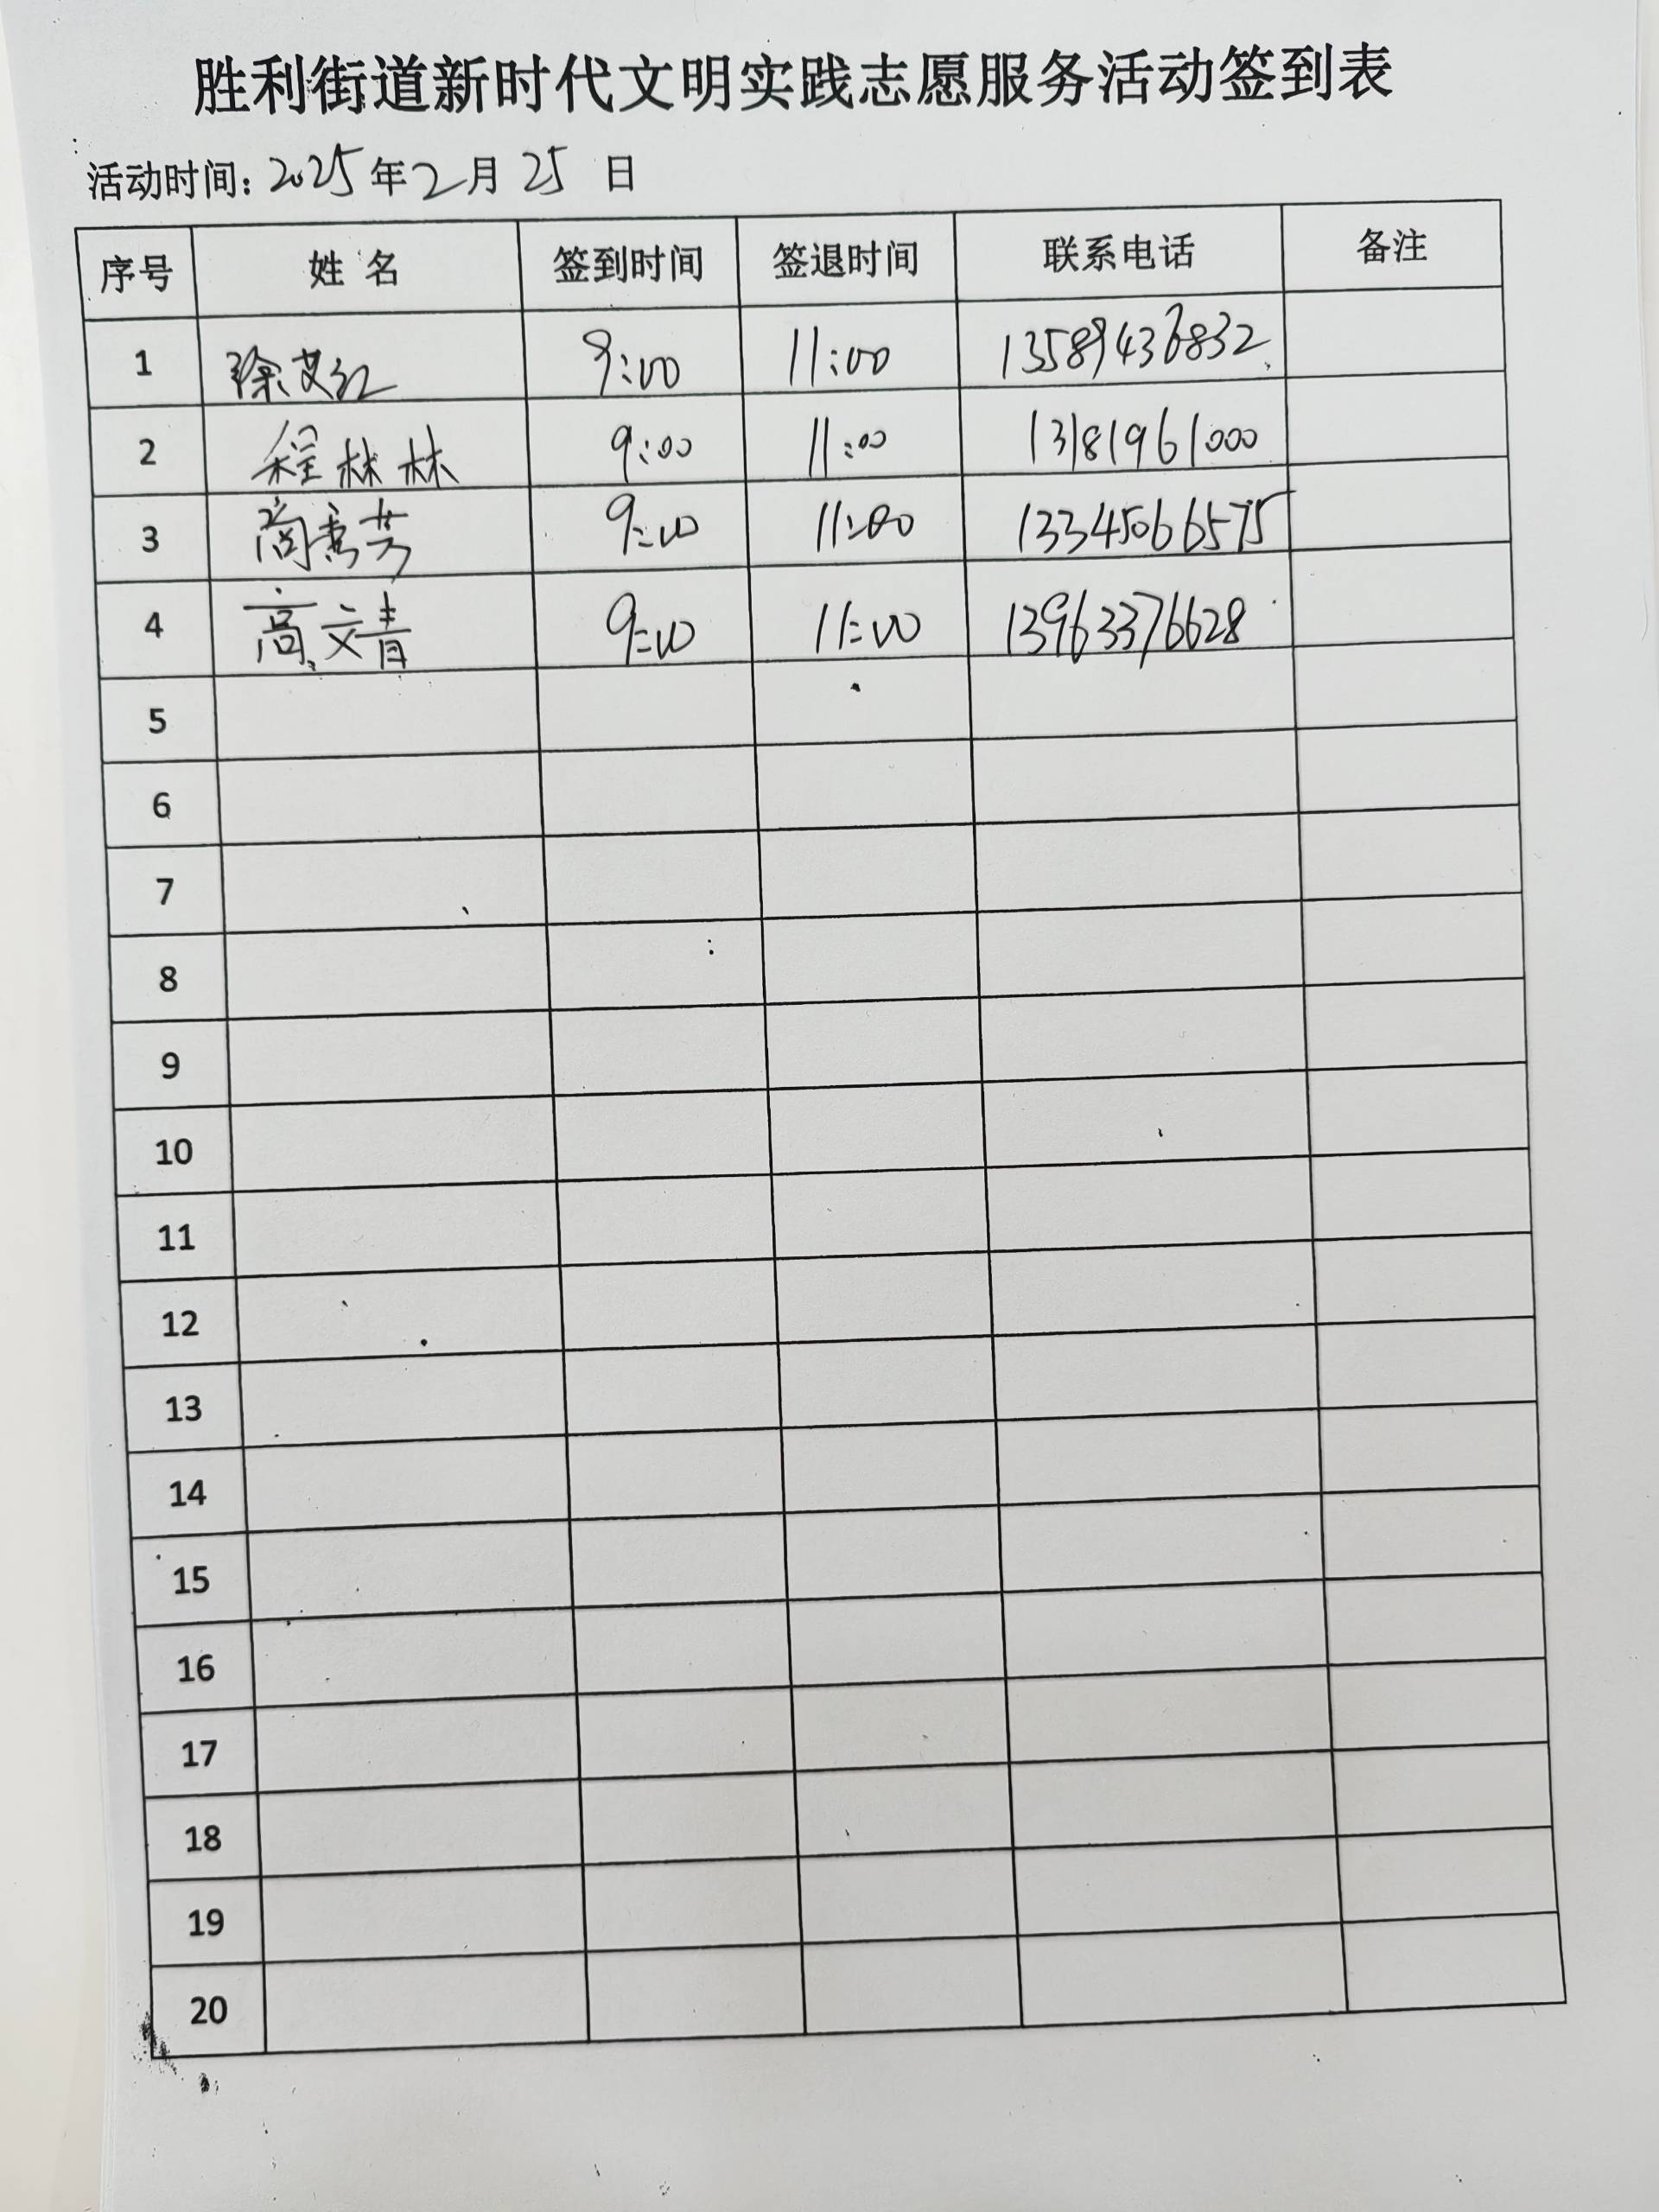 胜利街道新时代文明实践志愿服务活动签到表
活动时间: 2025 年 2 月 25 日
序号 姓 名 签到时间 签退时间 联系电话 备注
1 徐艾红 9:00 11:00 13589436832
2 程林林 9:00 11:00 13181961000
3 商秀芳 9:00 11:00 13345066575
4 高文青 9:00 11:00 13963376628
5
6
7
8
9
10
11
12
13
14
15
16
17
18
19
20